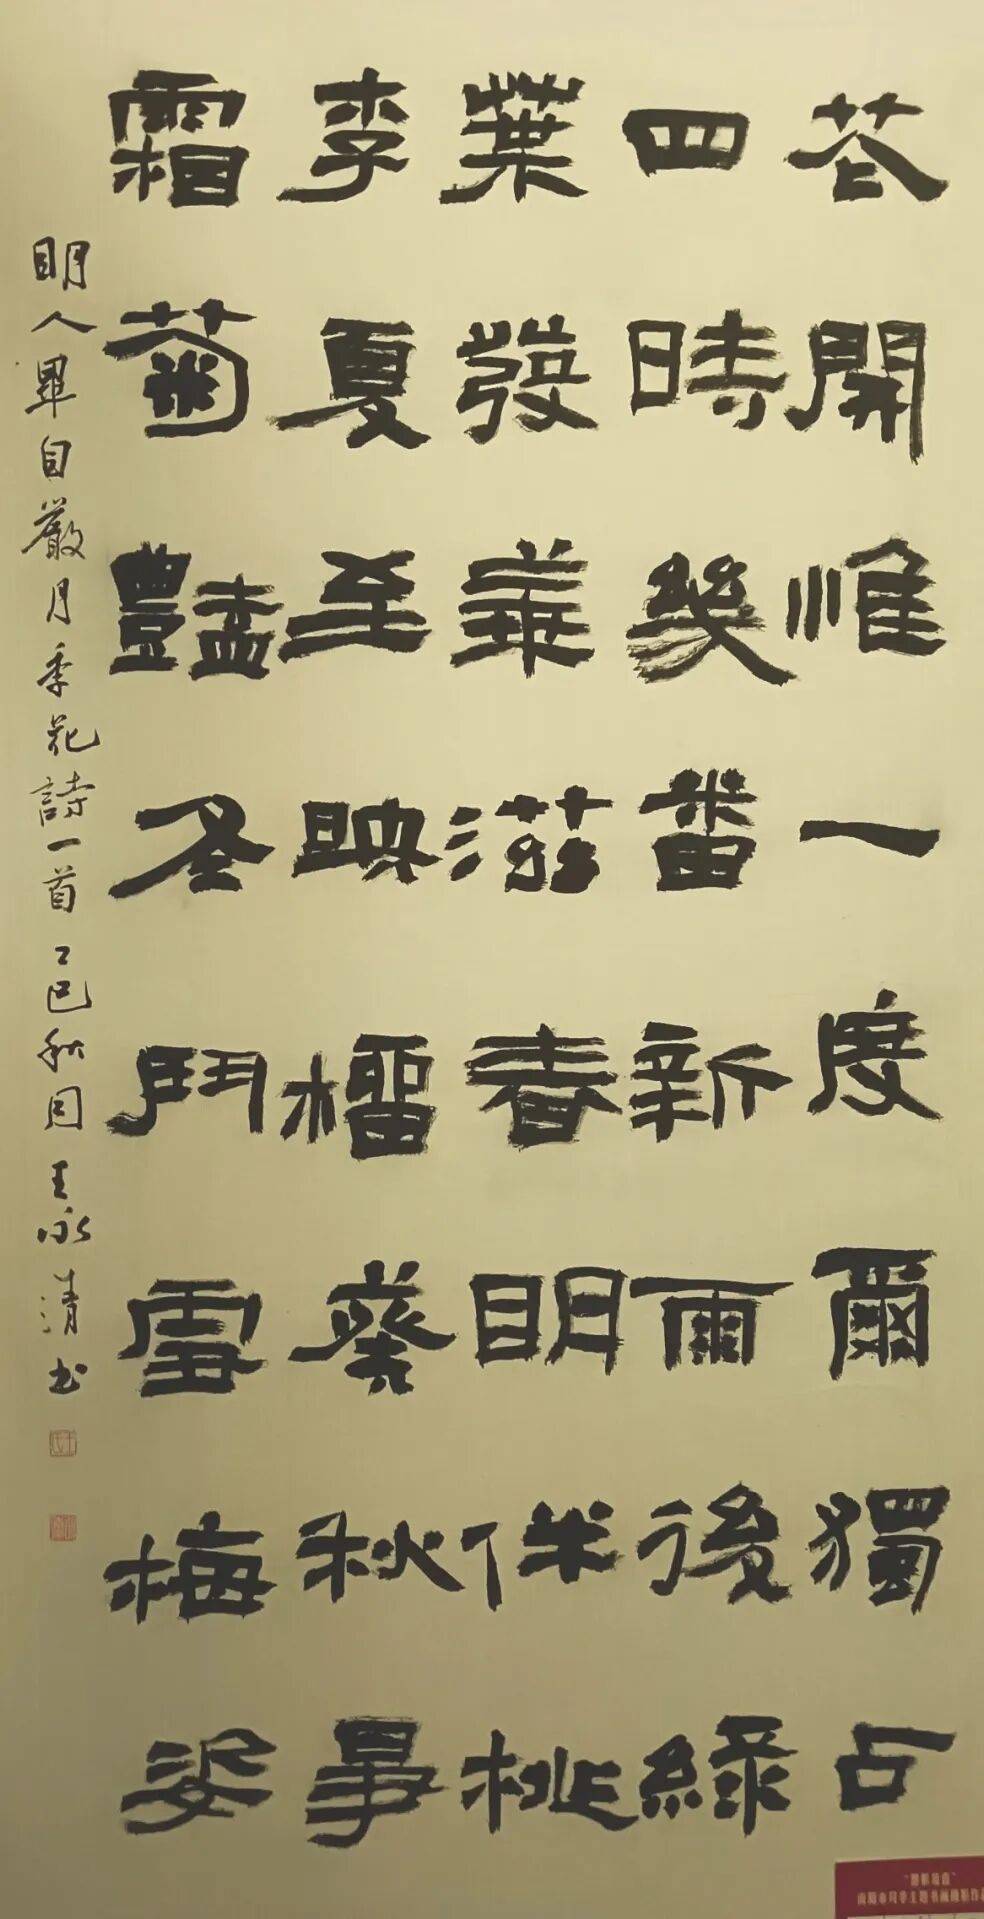 花開惟一度爾獨占
四時幾番新雨後綠
葉發華滋春明侔桃
李夏至映榴葵秋事
霜菊豔冬鬥雪梅姿
明人畢自嚴月季花詩一首乙巳秋月王永清書